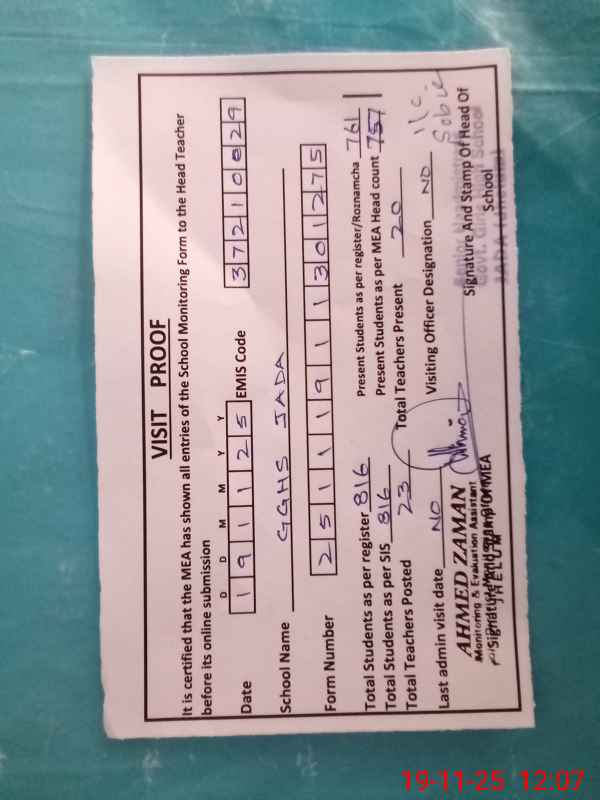 VISIT PROOF
It is certified that the MEA has shown all entries of the School Monitoring Form to the Head Teacher
before its online submission
D D M M Y Y
Date 1 9 1 1 2 5 EMIS Code 3 7 2 1 0 0 2 9
School Name GGHS JADA
Form Number 2 5 1 1 1 9 1 1 3 0 1 2 7 5
Total Students as per register 816 Present Students as per register/Roznamcha 761
Total Students as per SIS 816 Present Students as per MEA Head count 757
Total Teachers Posted 23 Total Teachers Present 20
Last admin visit date NO Visiting Officer Designation NO
I/C
AHMED ZAMAN
Monitoring & Evaluation Assistant
Signature And Stamp Of MEA
JHELUM
Signature And Stamp Of Head Of
School
Govt. Girls High School
JADA (Jhelum)
19-11-25 12:07